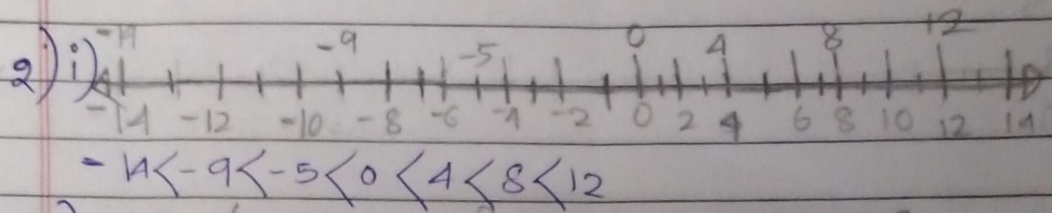 -14 -9 -5 0 4 8 12
2) i)
-14 -12 -10 -8 -6 -4 -2 0 2 4 6 8 10 12 14
-14<-9<-5<0<4<8<12